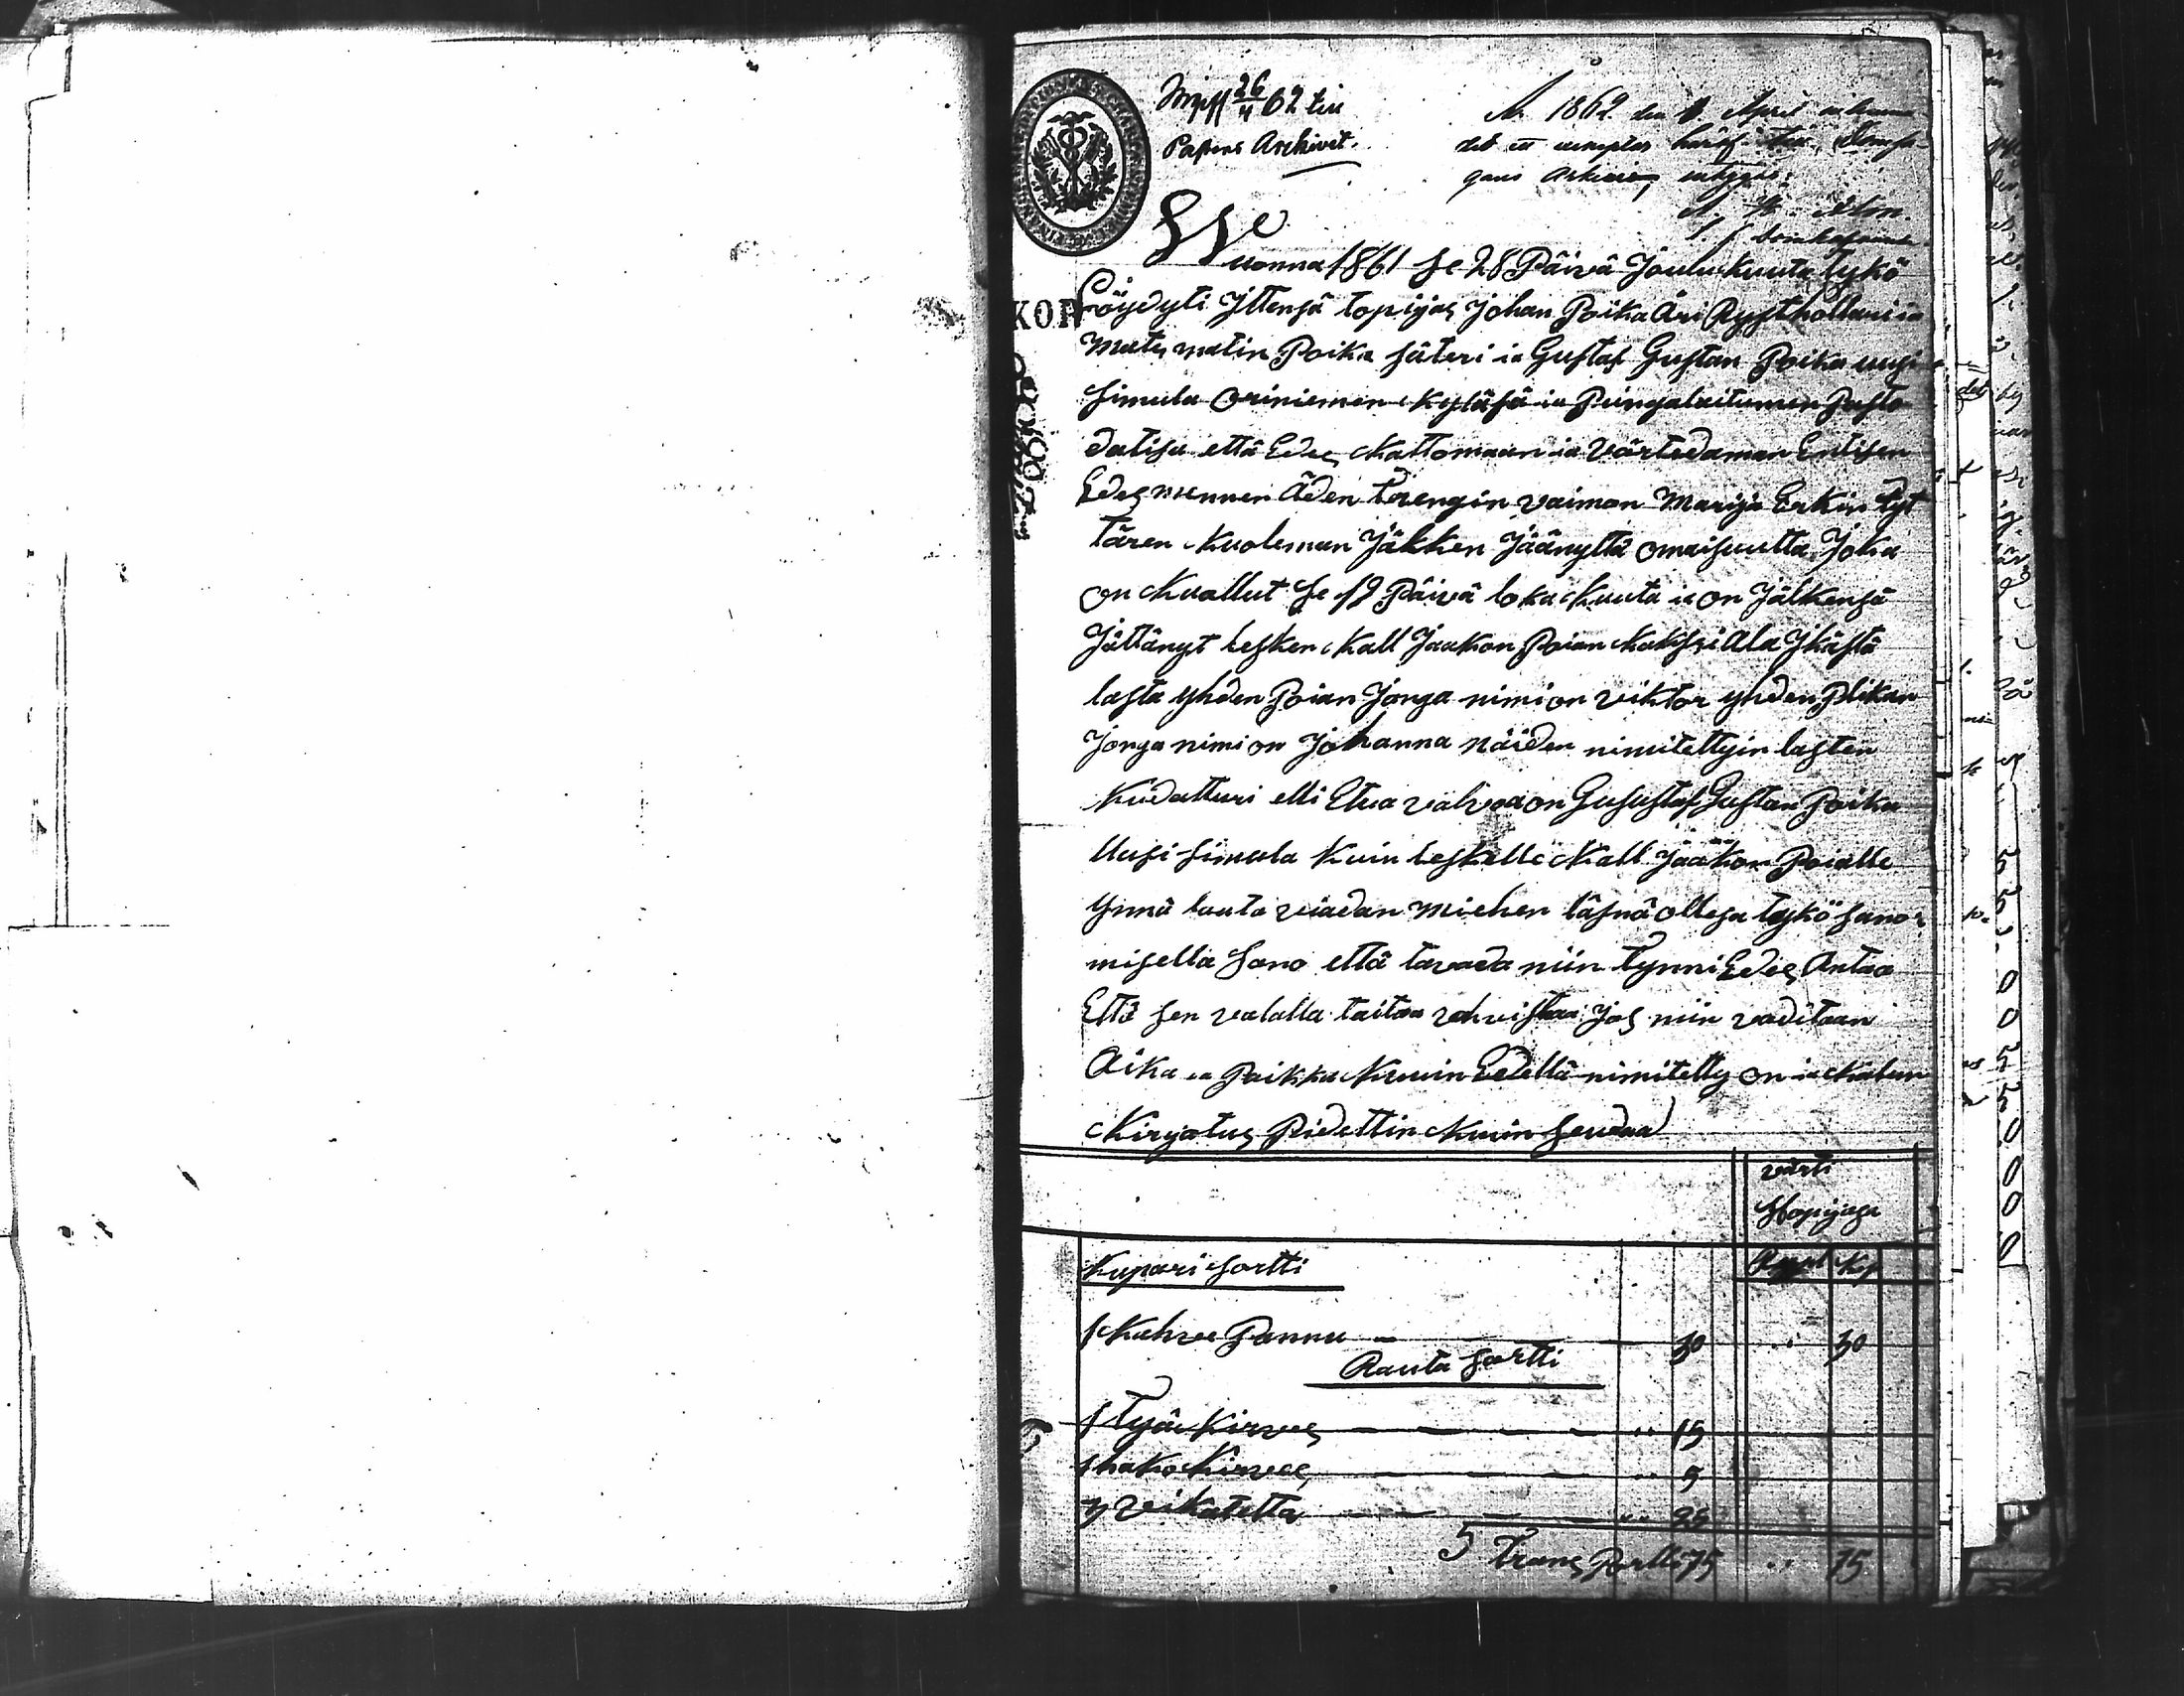 26/4 62 till
Papers Archivet.
År 1862 den April
det exemplar häraf till
gans Arkiv
Wuonna 1861 se 28 Päivä Joulukuuta tykö
Löydyti Ittensä topijas Johan Poika Äri Rysthollari ia
Mats matin Poika säteri ia Gustaf Gustan Poika uusi
simula Oriniemen Kyläsä ia Pungalaitumen Pasto
datisa että Edes Kattomaan ia värtedaman Entisen
Edesmennen Äden Trengin vaimon Marija Erkin tyt
tären Kuoleman Jälken Jäänyttä omaisuutta Joka
on Kuollut se 12 Päivä loka Kuuta ia on Jälkensä
Jättänyt lesken Kall Jaakon Poian Kaksi Ala Ikästä
lasta yhden Poian Jonga nimi on Viktor yhden Plikan
Jonga nimi on Johanna näiden nimitettyin lasten
Kudatturi elli Etua valvoa on Gusustaf Gustan Poika
Uusi simula Kuin leskelle Kall Jaakon Poialle
Ynnä lauta miehen läsnä ollesa tykö sano
misella sano että tavara niin Tynni Edes Antaa
Että sen valalla taitaa vahvistaa Jos niin vaditaan
Aika ia Paikka Kuuin Edellä nimitetty on ia Kalun
Kirjotus Pidettin Kuuin seuraa
värti
Hopijasa
Rypl Kop
Kupari sortti
1 Kahve Pannu 30 " 30
Rauta sortti
1 Työ Kirves " 15
1 hako Kirves " 5
3 veikatetta " 25
Trans Portti 75 " 75